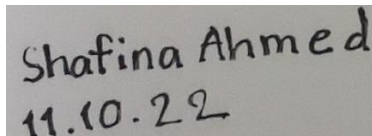 Shafina Ahmed
11.10.22